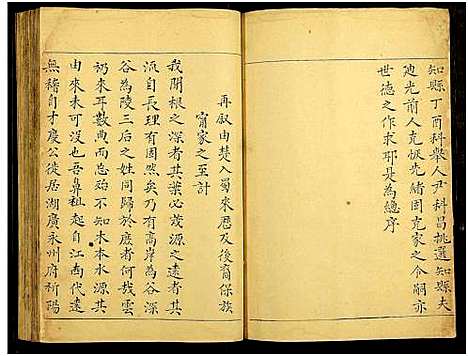 知縣丁酉科舉人尹科昌挑選知縣夫
廸光前人克恢先緒固克家之令嗣亦
世德之作求耶是為總序
再叙由楚入蜀來歷及後裔保族
甯家之至計
我聞根之深者其葉必茂源之遠者其
流自長理有固然矣乃有高岸為谷深
谷為陵三后之姓同歸於庶者何哉雲
礽來耳數典而忘殆不知木本水源其
由來未可没也吾鼻祖起自江西代遠
無稽自才慶公徙居湖廣永州府祈陽